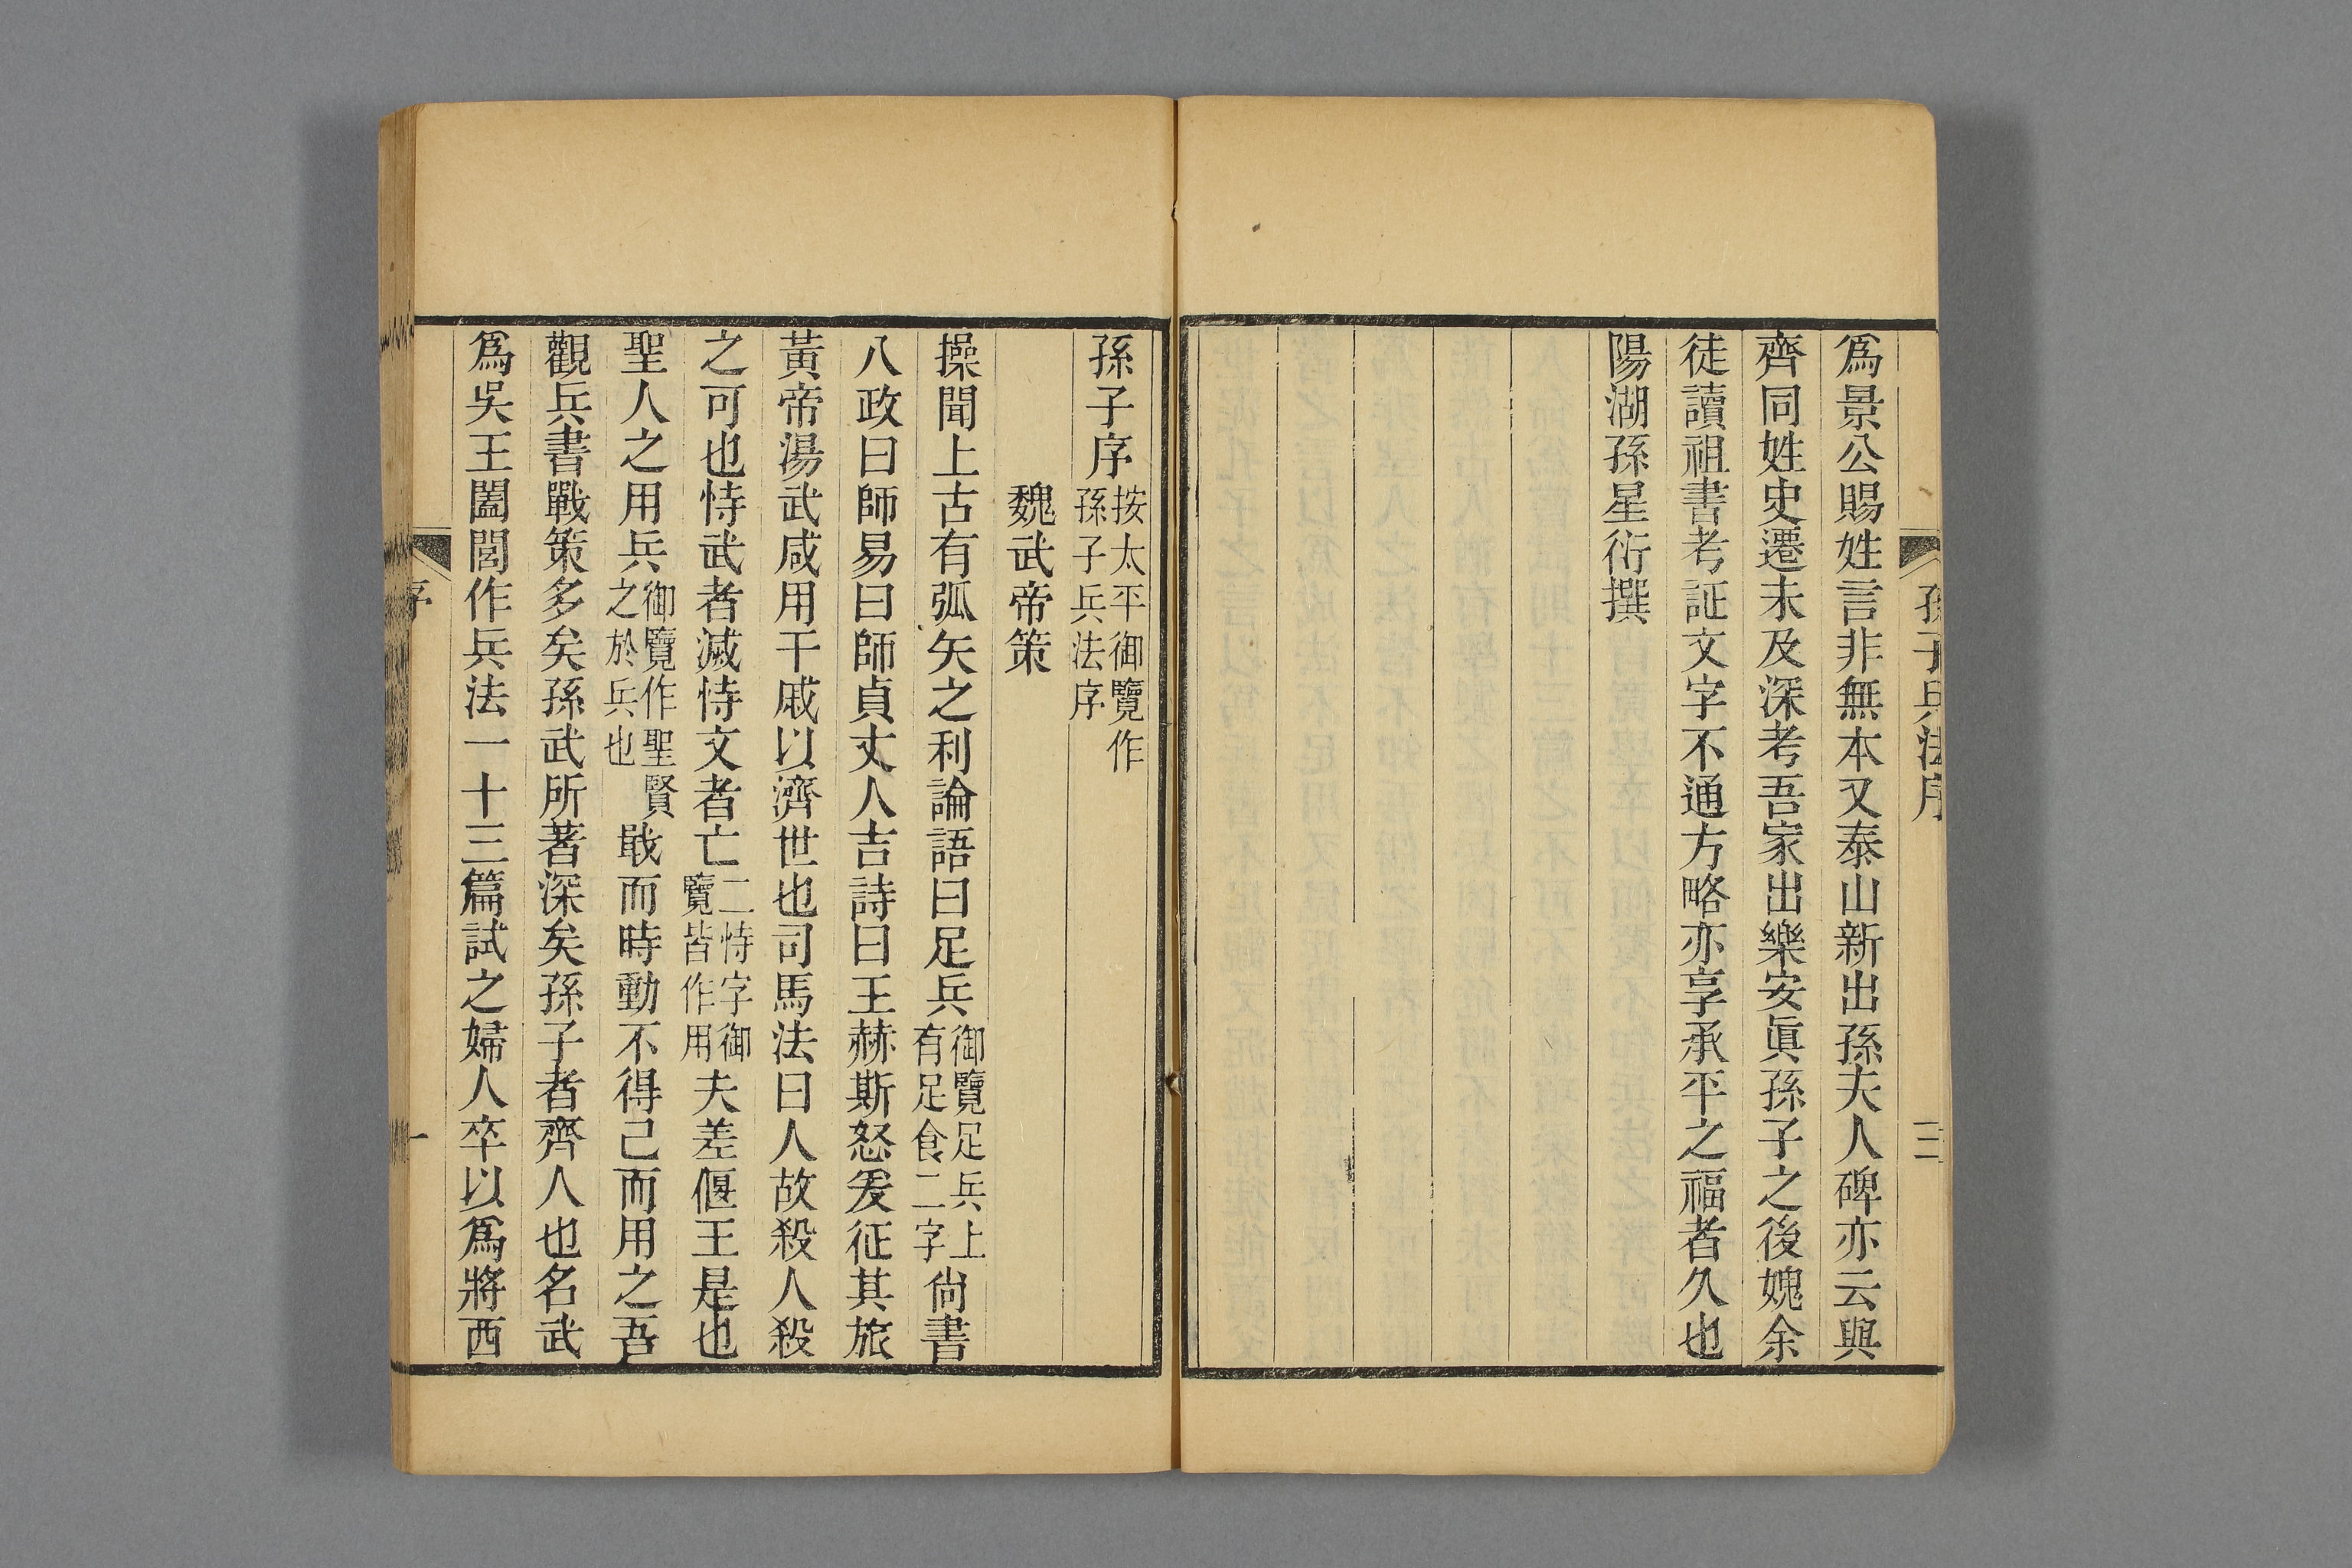 孫子兵法序
三
爲景公賜姓言非無本又泰山新出孫夫人碑亦云與
齊同姓史遷未及深考吾家出樂安眞孫子之後媿余
徒讀祖書考証文字不通方略亦享承平之福者久也
陽湖孫星衍撰
孫子序
按太平御覽作
孫子兵法序
魏武帝策
操聞上古有弧矢之利論語曰足兵
御覽足兵上
有足食二字
尙書
八政曰師易曰師貞丈人吉詩曰王赫斯怒爰征其旅
黃帝湯武咸用干戚以濟世也司馬法曰人故殺人殺
之可也恃武者滅恃文者亡
二恃字御
覽皆作用
夫差偃王是也
聖人之用兵
御覽作聖賢
之於兵也
戢而時動不得已而用之吾
觀兵書戰策多矣孫武所著深矣孫子者齊人也名武
爲吳王闔閭作兵法一十三篇試之婦人卒以爲將西
序
一